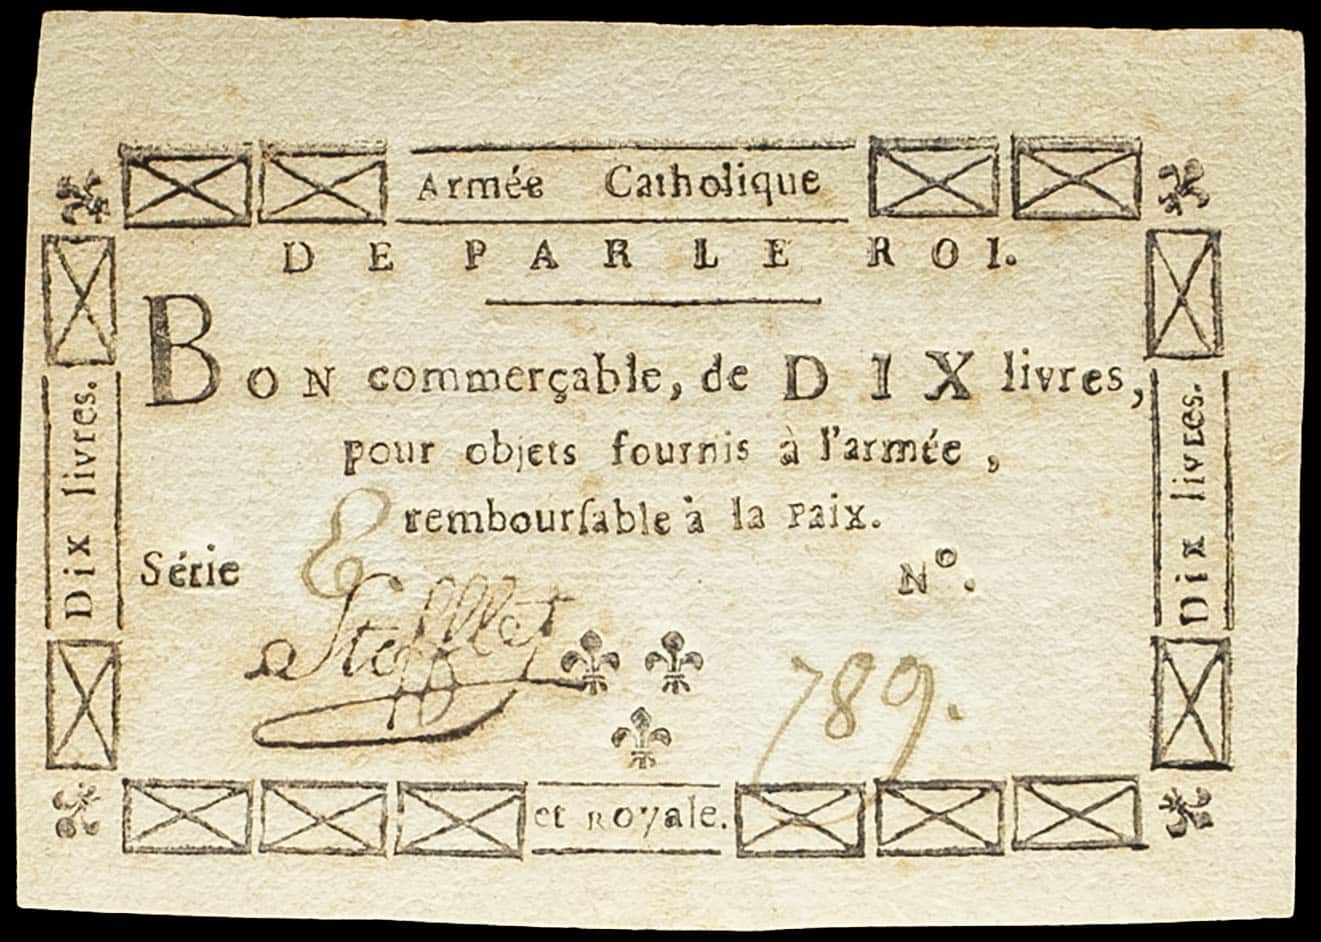 Armée Catholique
DE PAR LE ROI.
BON commerçable, de DIX livres,
pour objets fournis à l'armée,
rembourſable à la Paix.
Série E
N°.
789.
Stofflet
et Royale.
Dix livres.
Dix livres.